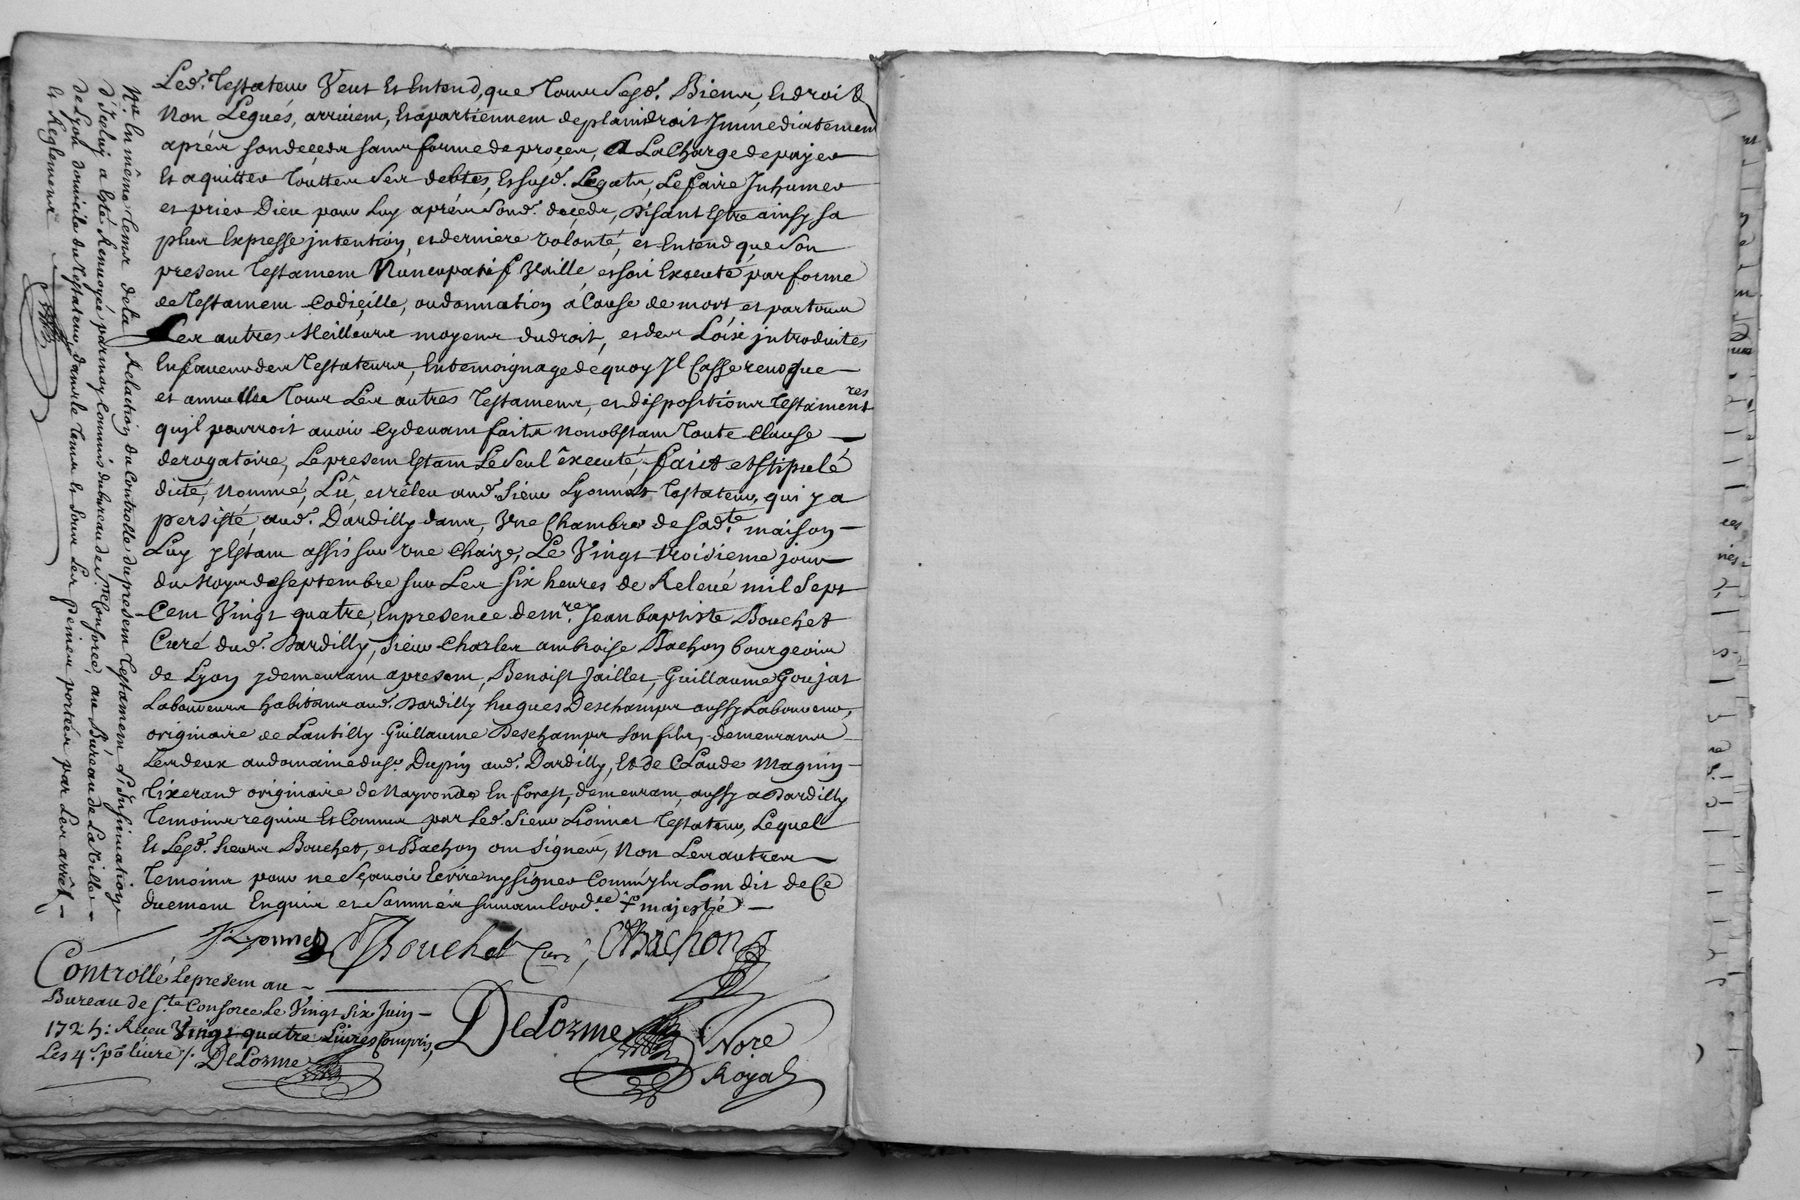 Led. Testateur Veut Et Entend, que Tous Sesd. Biens, Et droits
Non Legués, arrivient, Et apartiennent de plaindroit Immediatement
aprés son deçeds sans forme de proçes, A La Charge de payer
Et aquitter Touttes Ses debtes, Et susd. Legats, Le faire Inhumer
et prier Dieu pour Luy aprés Sond. deçeds, Disant Estre ainsy sa
plus Expresse jntention, et derniere volonté, et Entend que Son
present Testament Nuncupatif Vaille, et soit Executé par forme
de Testament Codiçille, ou donnation à Cause de mort, et par tous
Les autres Meilleurs moyens du droit, et des Loix jntroduites
En faveur des Testateurs, En temoignage de quoy Jl Casse revoque
et annulle Tous Les autres Testaments, et dispositions Testament.res
qu'jl pourroit avoir Cydevant faits nonobstant Toute Clause
derogatoire, Le present Estant Le Seul êxecuté, fait et Stipulé
dicté, Nommé, Lû, et rêleu aud. Sieur Lyonnet Testateur, qui y a
persisté, aud. Dardilly dans, Vne Chambre de Sad.te maison
Luy y Estant assis sur vne Chaize, Le Vingt troisieme jour
du Moys de Septembre sur Les Six heures de Relevé mil Sept
Cent Vingt quatre, En presence de m.re Jean baptiste Bouchet
Curé dud. Dardilly, Sieur Charles ambroise Bachon bourgeois
de Lyon y demeurant apresent, Benoist Jaillet, Guillaume Goujat
Laboureurs habitans aud. Dardilly hugues Deschamps aussy Laboureur,
originaire de Lantilly Guillaume Deschamps son fils, demeurans
Les deux au domaine du sr. Dupin aud. Dardilly, Et de Claude Magnin
Tixerand originaire de Nayronde En forest, demeurant, aussy a Dardilly
Temoins requis Et Connus par Led. Sieur Lionnet Testateur, Lequel
Et Lesd. Sieurs Bouchet, et Bachon ont Signés, Non Les autres
Temoins pour ne Sçavoir Ecrire ny Signer Comm'jls L'ont dit de Ce
duement Enquis et Sommés suivant L'ord.ce de majesté
Lyonnet Bouchet Curé, CBachon
Controllé le present au
Bureau de S.te Consorce Le Vingt Six Juin
1725: Receu Vingt quatre Livres Compris,
Les 4 s. po Livre /. DeLorme
DeLorme
Nore
Royal
Na En même Tems de la Relation du Controlle du present Testament L'Insinuation
d'Iceluy a Esté Renvoyée par moy Commis du bureau de S.te Consorce, au Bureau de La Ville
de Lyon domicile du Testateur, dans le Tems Et Sous Les peines portées par Les arrêts
Et Reglemens